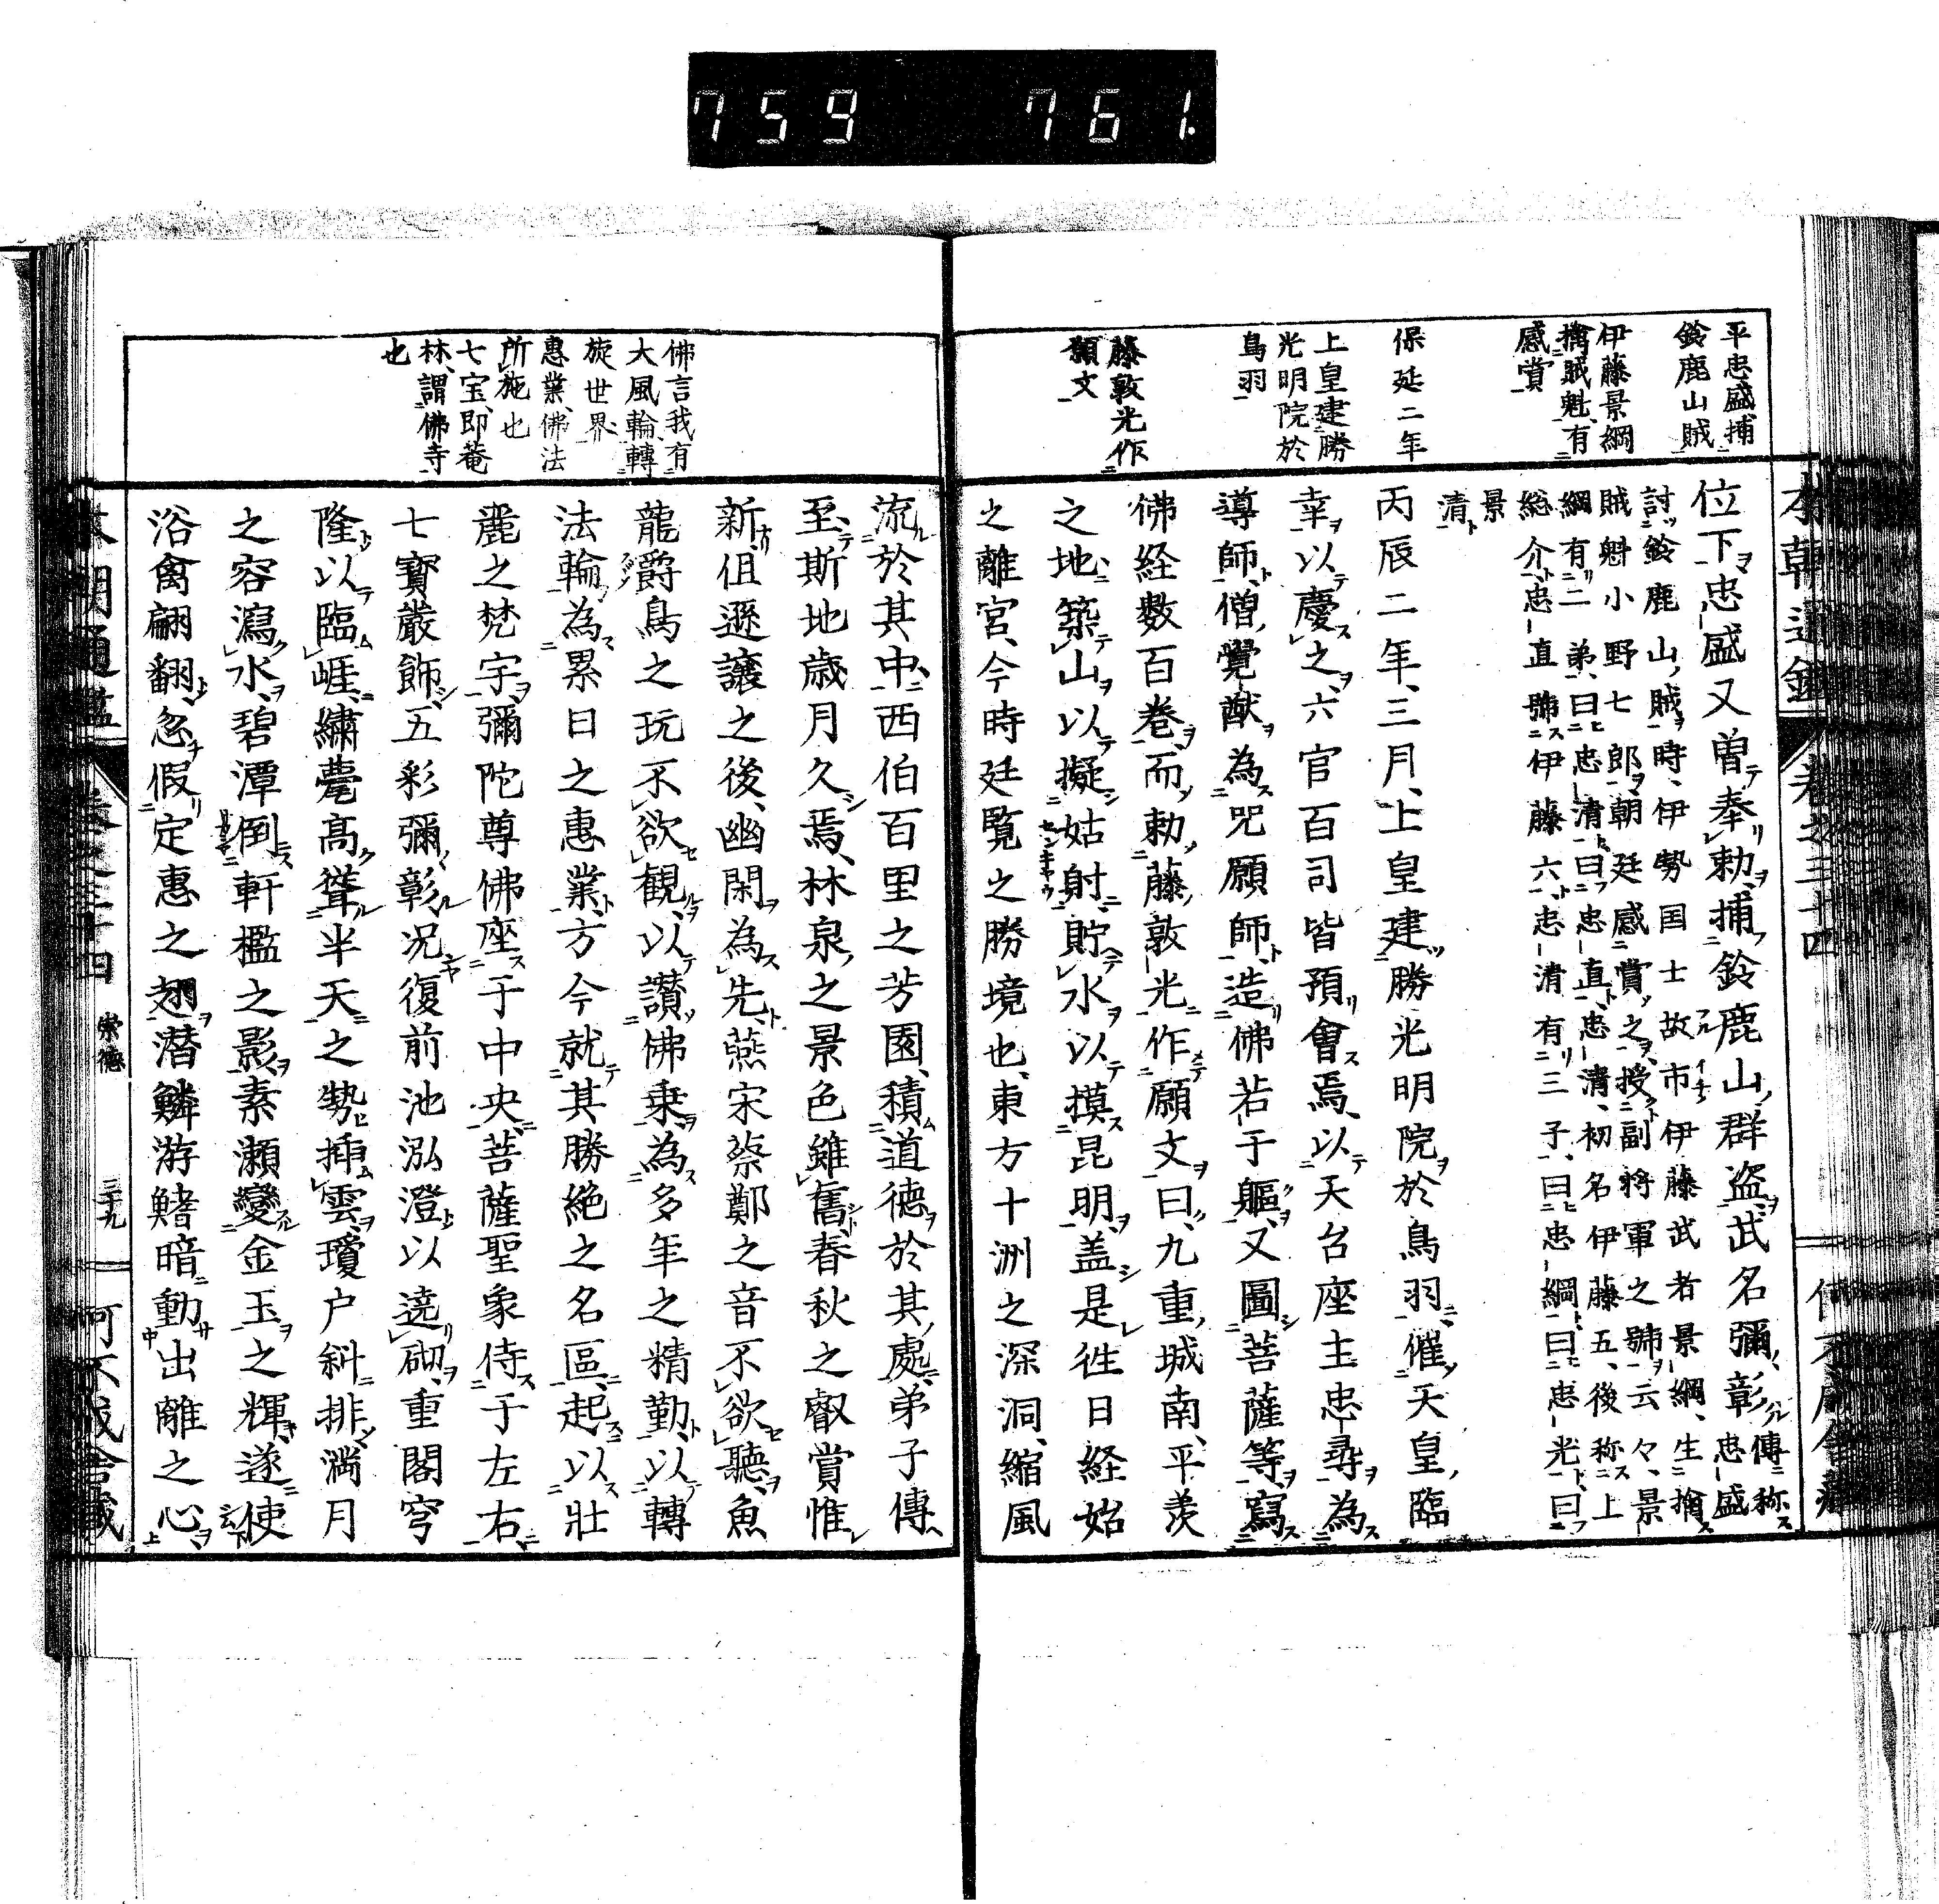 759 761.
平忠盛捕
鈴鹿山賊
伊藤景綱
擒賊魁有
感賞
保延二年
上皇建勝
光明院於
鳥羽
藤敦光作
願文
位下忠盛又曽奉勅捕鈴鹿山群盗武名彌彰傳称忠盛
討鈴鹿山賊時伊勢国士故市伊藤武者景綱生擒
賊魁小野七郎朝廷感賞之授副将軍之號云々景
綱有二弟曰忠清曰忠直忠清初名伊藤五後称上
総介忠直號伊藤六忠清有三子曰忠綱曰忠光曰
景清
丙辰二年三月上皇建勝光明院於鳥羽催天皇臨
幸以慶之六官百司皆預會焉以天台座主忠尋為
導師僧覺猷為咒願師造佛若于軀又圖菩薩等寫
佛経数百巻而勅藤敦光作願文曰九重城南平羨
之地築山以擬姑射貯水以摸昆明盖是徃日経始
之離宮今時廷覧之勝境也東方十洲之深洞縮風
本朝通鑑 巻之三十四
佛言我有
大風輪轉
旋世界
惠業佛法
所施也
七宝即菴
林謂佛寺
也
流於其中西伯百里之芳園積道徳於其處弟子傳
至斯地歳月久焉林泉之景色雖舊春秋之叡賞惟
新但遜譲之後幽閑為先燕宋蔡鄭之音不欲聽魚
龍爵鳥之玩不欲観以讃佛乗為多年之精勤以轉
法輪為累日之惠業方今就其勝絶之名區起以壮
麗之梵宇彌陀尊佛座于中央菩薩聖象侍于左右
七寳嚴飾五彩彌彰况復前池泓澄以遶砌重閣穹
隆以臨崕繍甍高聳半天之勢挿雲瓊户斜排満月
之容瀉水碧潭倒軒檻之影素瀬變金玉之輝遂使
浴禽翩翻忽假定惠之翅潜鱗游鰭暗動出離之心
本朝通鑑 巻之三十四 崇徳 三十九